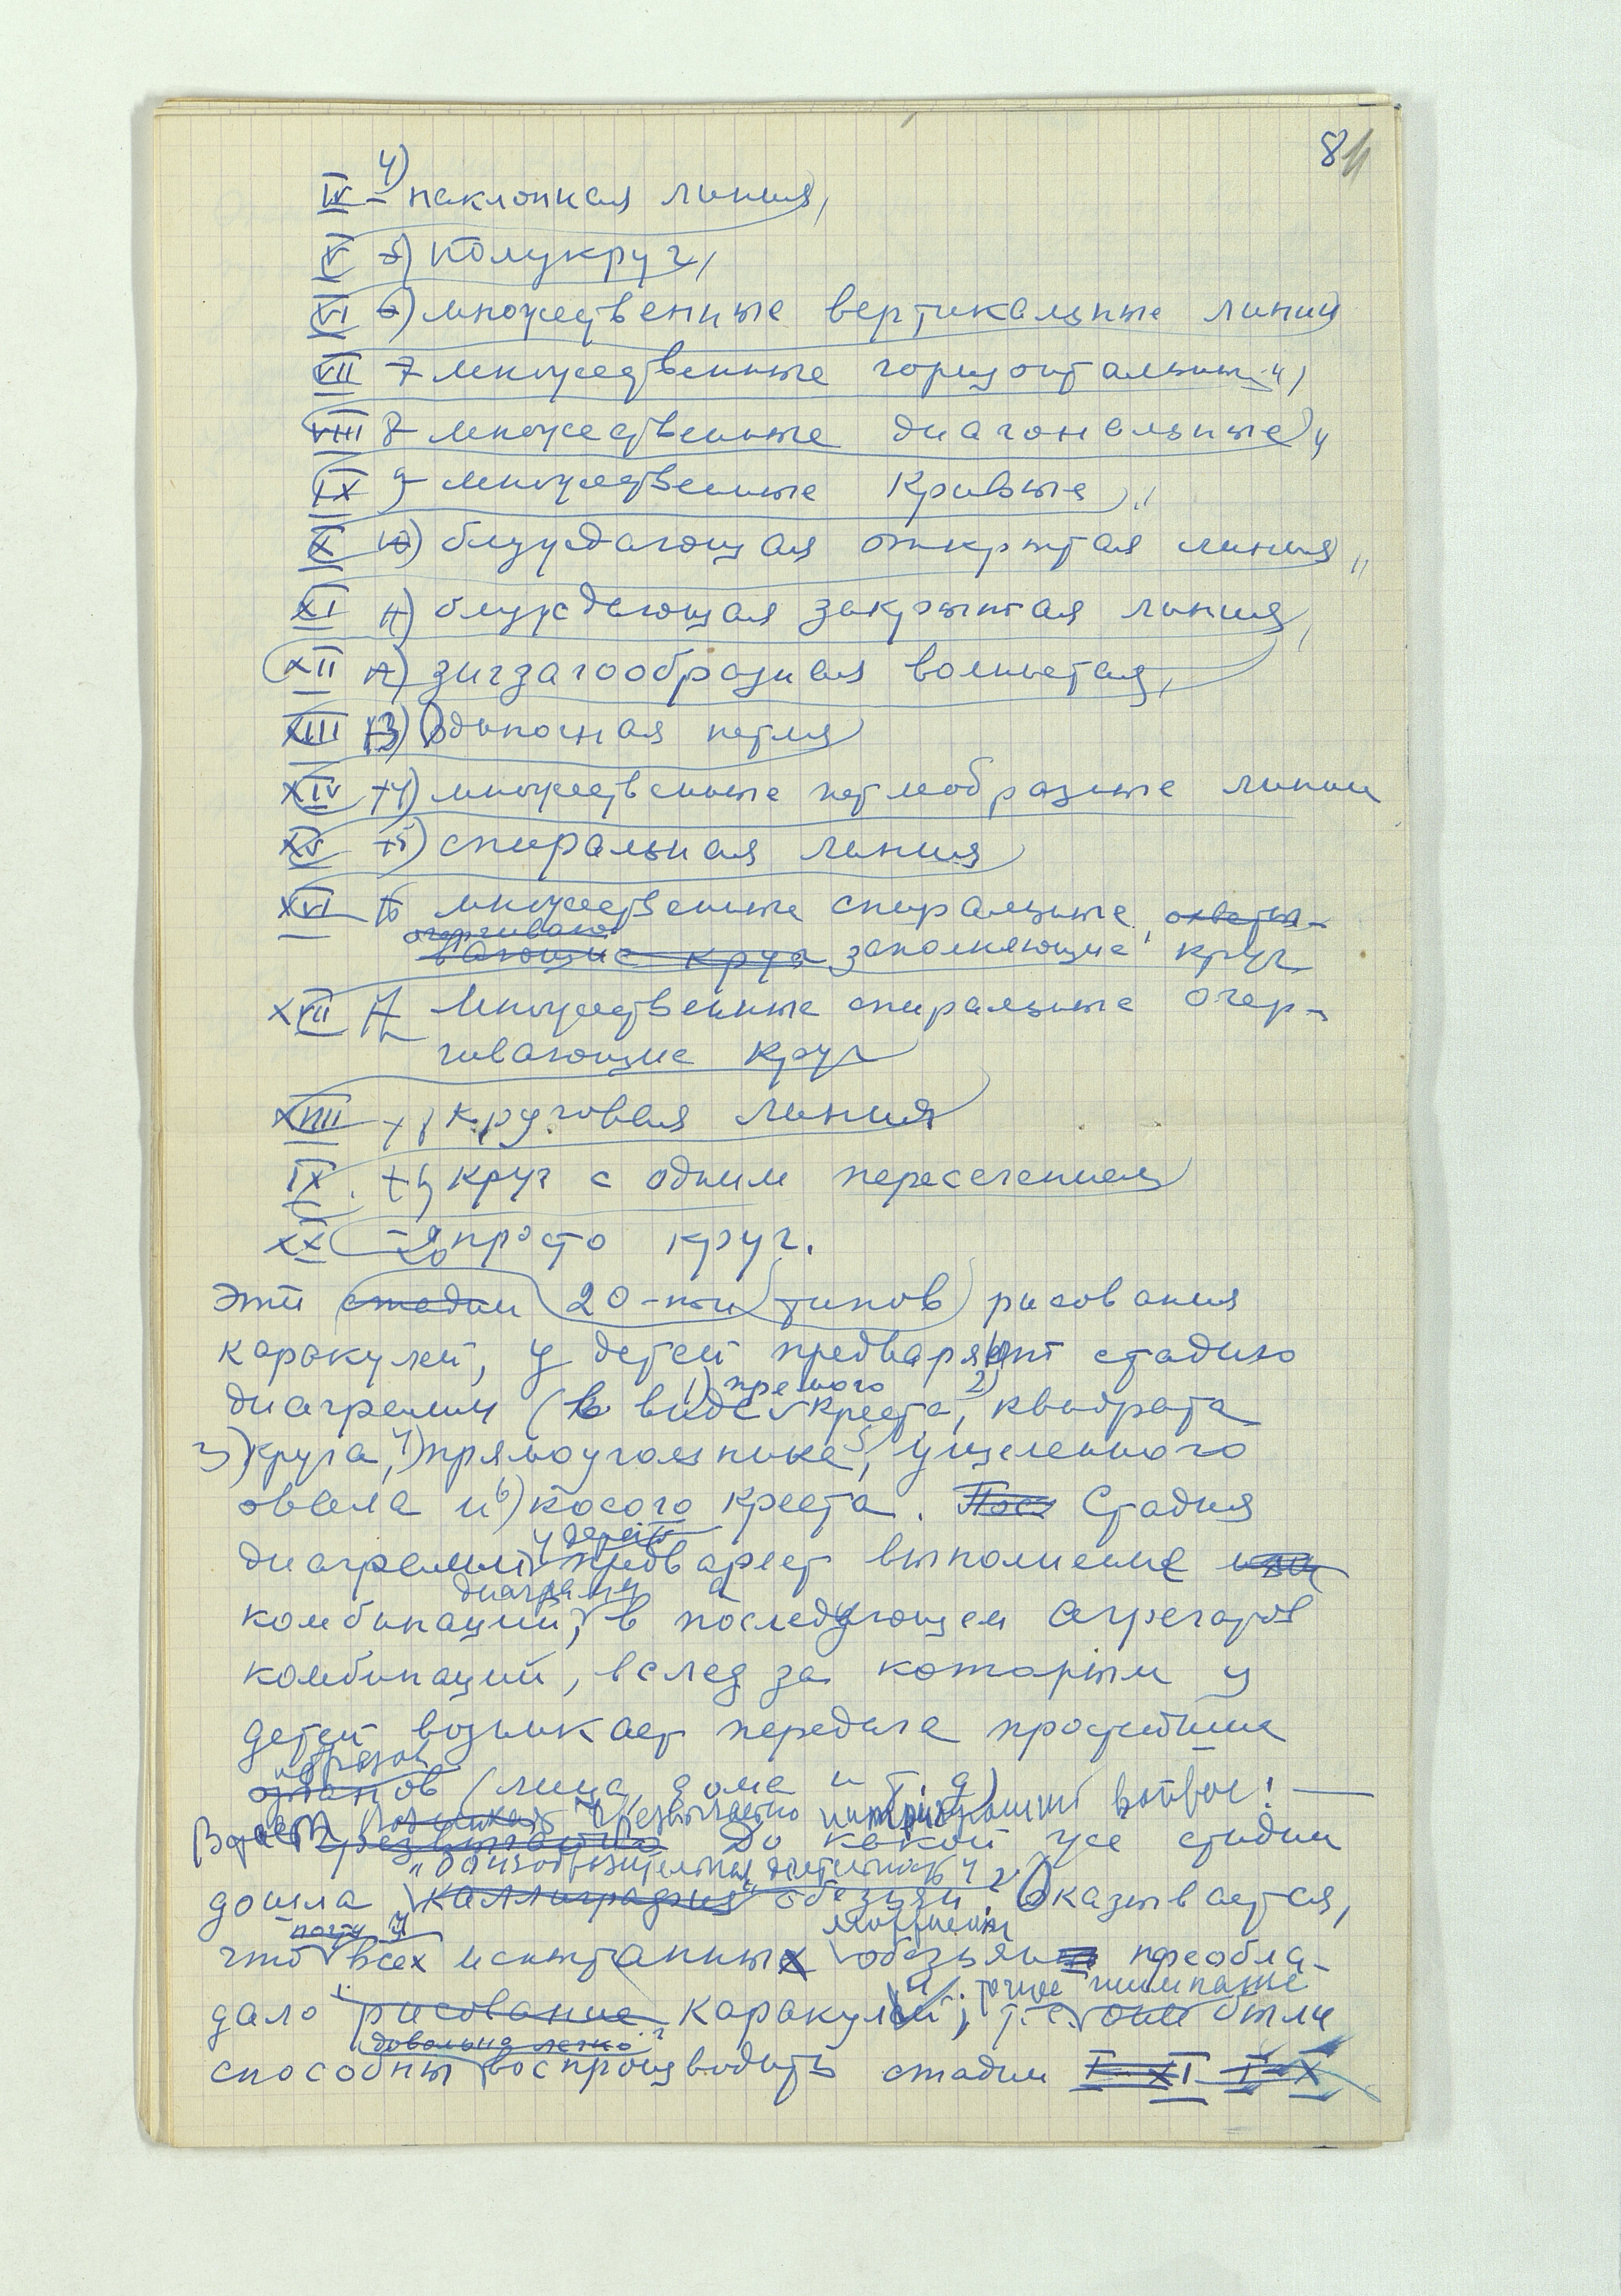 81
IV 4) наклонная линия,
V 5) полукруг,
VI 6) множественные вертикальные линии
VII 7 множественные горизонтальные ",
VIII 8 множественные диагональные "
IX 9 множественные кривые, "
X 10) блуждающая открытая линия, "
XI 11) блуждающая закрытая линия,
XII 12) зигзагообразная волнистая,
XIII 13) Одиночная петля
XIV 14) множественные петлеобразные линии
XV 15) спиральная линия
XVI 16 множественные спиральные, охваты-
очерчиваю
вающие круг заполняющие круг
XVII 17 Множественные спиральные очер-
чивающие круг
XVIII 18 круговая линия
IX. 19 круг с одним пересечением
XX 20 просто круг.
Эти стадии 20-ти типов рисования
каракулей, у детей предваряют стадию
1) прямого 2)
диаграмм (в виде креста, квадрата
3) круга, 4) прямоугольника, 5) удлиненного
овала и 6) косого креста. Пос Стадия
у детей
диаграммы предваряет выполнение
диаграмм а
комбинаций, в последующем агрегатов
комбинаций, вслед за которым у
детей возникает передача простейших
образов
(лица, дома и т.д)
Возникает чрезвычайно интригующий вопрос! —
чрезвычайно До какой же стадии
"Обизобразительная деятельность"
дошла каллиграфия" обезьян? Оказывается,
почти у молодых
что всех испытанных обезьян преобла-
точнее шимпанзе
дало рисование каракулей, т.е. они были
довольно легко
способны воспроизводить стадии I-XI I-X